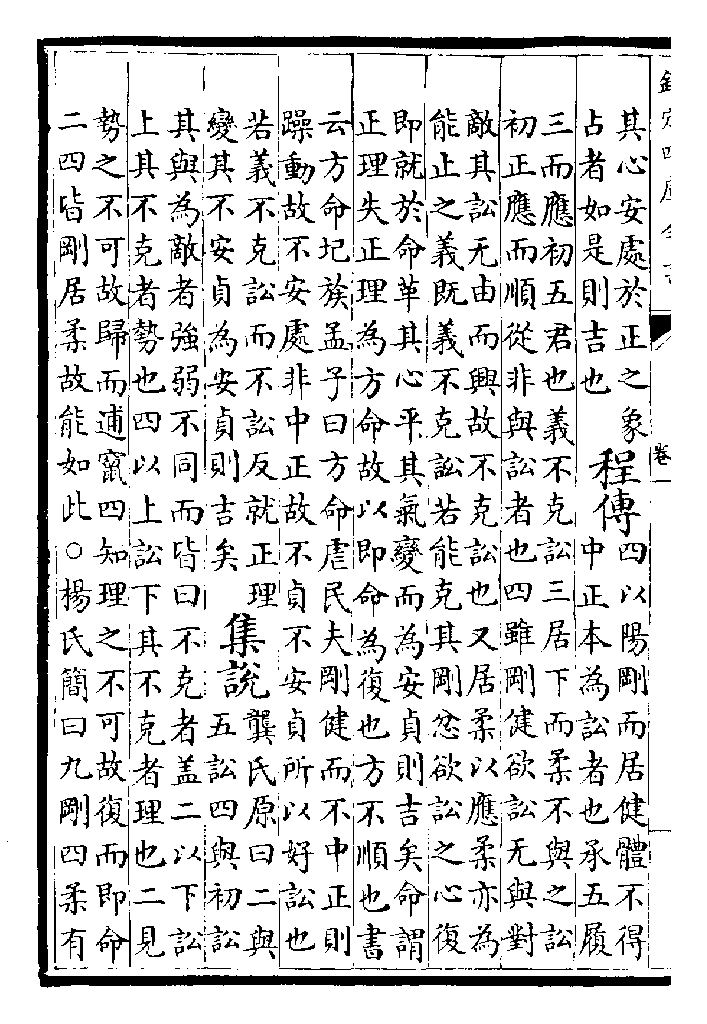 欽定四庫全書
卷一
其心安處於正之象
占者如是則吉也
程傳
四以陽剛而居健體不得
中正本為訟者也承五履
三而應初五君也義不克訟三居下而柔不與之訟
初正應而順從非與訟者也四雖剛健欲訟无與對
敵其訟无由而興故不克訟也又居柔以應柔亦為
能止之義既義不克訟若能克其剛忿欲訟之心復
即就於命革其心平其氣變而為安貞則吉矣命謂
正理失正理為方命故以即命為復也方不順也書
云方命圮族孟子曰方命虐民夫剛健而不中正則
躁動故不安處非中正故不貞不安貞所以好訟也
若義不克訟而不訟反就正理
變其不安貞為安貞則吉矣
集說
龔氏原曰二與
五訟四與初訟
其與為敵者強弱不同而皆曰不克者盖二以下訟
上其不克者勢也四以上訟下其不克者理也二見
勢之不可故歸而逋竄四知理之不可故復而即命
二四皆剛居柔故能如此○楊氏簡曰九剛四柔有